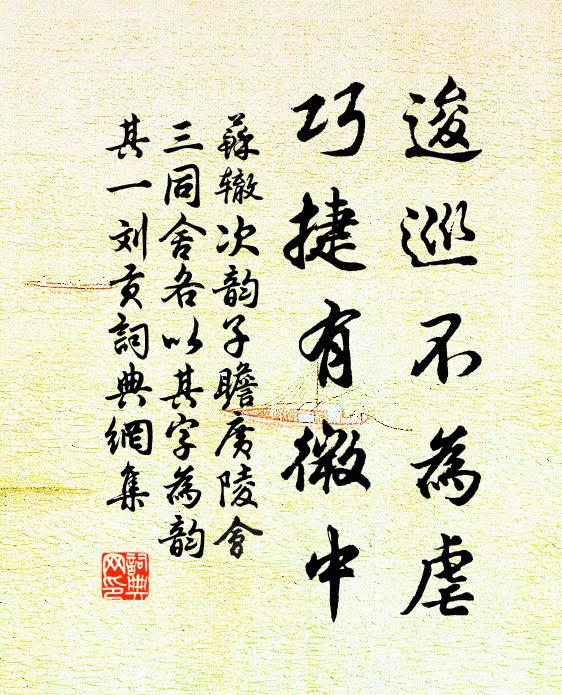 逡巡不為虐
巧捷有微中
蘇辙次韵子瞻广陵會
三同舍各以其字為韵
其一刘贡詞典網集
詞典
网印